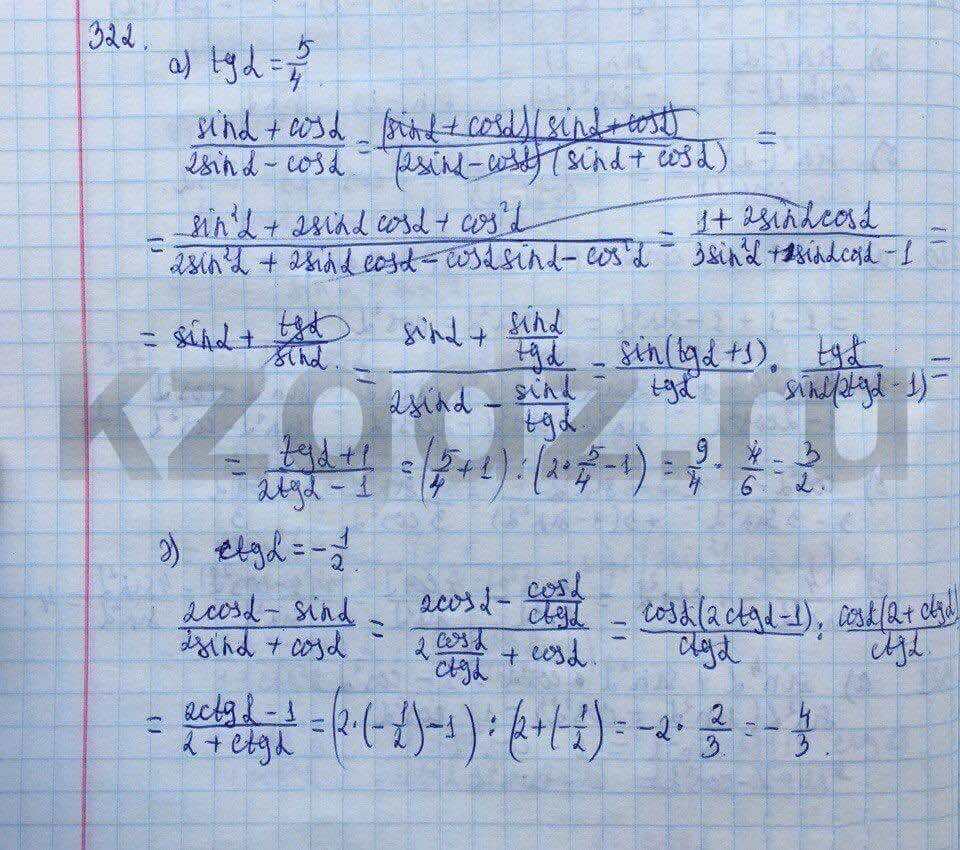 322.
а) tgα = 5/4
(sinα + cosα)/(2sinα - cosα) = ((sinα + cosα)(sinα + cosα))/((2sinα - cosα)(sinα + cosα)) =
= (sin²α + 2sinα cosα + cos²α)/(2sin²α + 2sinα cosα - cosα sinα - cos²α) = (1 + 2sinα cosα)/(3sin²α + sinα cosα - 1) =
= sinα + tgα/sinα. = (sinα + sinα/tgα)/(2sinα - sinα/tgα) = sin(tgα + 1)/tgα · tgα/(sinα(2tgα - 1)) =
= (tgα + 1)/(2tgα - 1) = (5/4 + 1) : (2·5/4 - 1) = 9/4 · 4/6 = 3/2.
д) ctgα = -1/2.
(2cosα - sinα)/(2sinα + cosα) = (2cosα - cosα/ctgα)/(2 cosα/ctgα + cosα.) = cosα(2ctgα - 1)/ctgα : cosα(2 + ctgα)/ctgα.
= (2ctgα - 1)/(2 + ctgα) = (2·(-1/2) - 1) : (2 + (-1/2) = -2 · 2/3 = -4/3.
kzgdz.ru